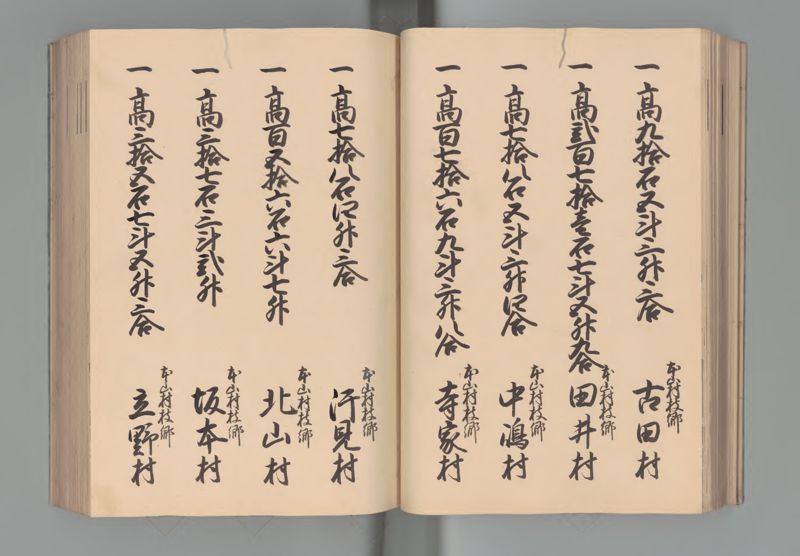 一 高九拾石五斗三升三合
本山村枝郷
古田村
一 高弐百七拾壱石七斗五升九合
本山村枝郷
田井村
一 高七拾八石五斗三升四合
本山村枝郷
中嶋村
一 高百七拾六石九斗三升八合
本山村枝郷
寺家村
一 高七拾八石四升三合
本山村枝郷
汗見村
一 高百五拾六石六斗七升
本山村枝郷
北山村
一 高三拾七石三斗弐升
本山村枝郷
坂本村
一 高三拾五石七斗五升三合
本山村枝郷
立野村